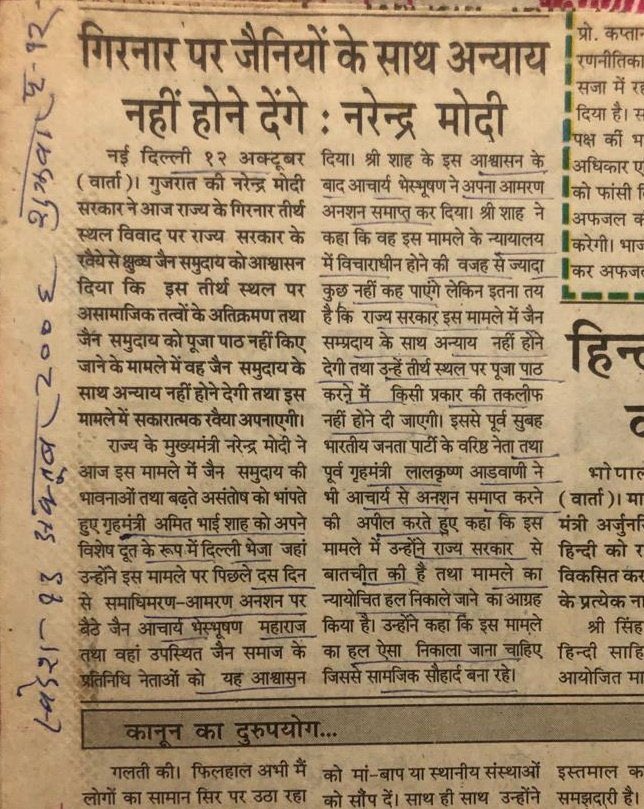 गिरनार पर जैनियों के साथ अन्याय
नहीं होने देंगे : नरेन्द्र मोदी
नई दिल्ली १२ अक्टूबर
(वार्ता)। गुजरात की नरेन्द्र मोदी
सरकार ने आज राज्य के गिरनार तीर्थ
स्थल विवाद पर राज्य सरकार के
रवैये से क्षुब्ध जैन समुदाय को आश्वासन
दिया कि इस तीर्थ स्थल पर
असामाजिक तत्वों के अतिक्रमण तथा
जैन समुदाय को पूजा पाठ नहीं किए
जाने के मामले में वह जैन समुदाय के
साथ अन्याय नहीं होने देगी तथा इस
मामले में सकारात्मक रवैया अपनाएगी।
राज्य के मुख्यमंत्री नरेन्द्र मोदी ने
आज इस मामले में जैन समुदाय की
भावनाओं तथा बढ़ते असंतोष को भांपते
हुए गृहमंत्री अमित भाई शाह को अपने
विशेष दूत के रूप में दिल्ली भेजा जहां
उन्होंने इस मामले पर पिछले दस दिन
से समाधिमरण-आमरण अनशन पर
बैठे जैन आचार्य भेस्भूषण महाराज
तथा वहां उपस्थित जैन समाज के
प्रतिनिधि नेताओं को यह आश्वासन
दिया। श्री शाह के इस आश्वासन के
बाद आचार्य भेस्भूषण ने अपना आमरण
अनशन समाप्त कर दिया। श्री शाह ने
कहा कि वह इस मामले के न्यायालय
में विचाराधीन होने की वजह से ज्यादा
कुछ नहीं कह पाएंगे लेकिन इतना तय
है कि राज्य सरकार इस मामले में जैन
सम्प्रदाय के साथ अन्याय नहीं होने
देगी तथा उन्हें तीर्थ स्थल पर पूजा पाठ
करने में किसी प्रकार की तकलीफ
नहीं होने दी जाएगी। इससे पूर्व सुबह
भारतीय जनता पार्टी के वरिष्ठ नेता तथा
पूर्व गृहमंत्री लालकृष्ण आडवाणी ने
भी आचार्य से अनशन समाप्त करने
की अपील करते हुए कहा कि इस
मामले में उन्होंने राज्य सरकार से
बातचीत की है तथा मामले का
न्यायोचित हल निकाले जाने का आग्रह
किया है। उन्होंने कहा कि इस मामले
का हल ऐसा निकाला जाना चाहिए
जिससे सामजिक सौहार्द बना रहे।
कानून का दुरुपयोग...
गलती की। फिलहाल अभी मैं
लोगों का सामान सिर पर उठा रहा
को मां-बाप या स्थानीय संस्थाओं
को सौंप दें। साथ ही साथ उन्होंने
इस्तमाल क
समझदारी है।
प्रो. कप्तान
रणनीतिका
सजा में रह
दिया है। स
पक्ष की भ
अधिकार ए
को फांसी
अफजल क
करेगी। भाज
कर अफजल
हिन्द
भोपाल
(वार्ता)। मा
मंत्री अर्जुन
हिन्दी को र
विकसित कर
के प्रत्येक ना
श्री सिंह
हिन्दी साहि
आयोजित मा
स्वदेश - १३ अक्तूबर २००६ शुक्रवार पृ-१२